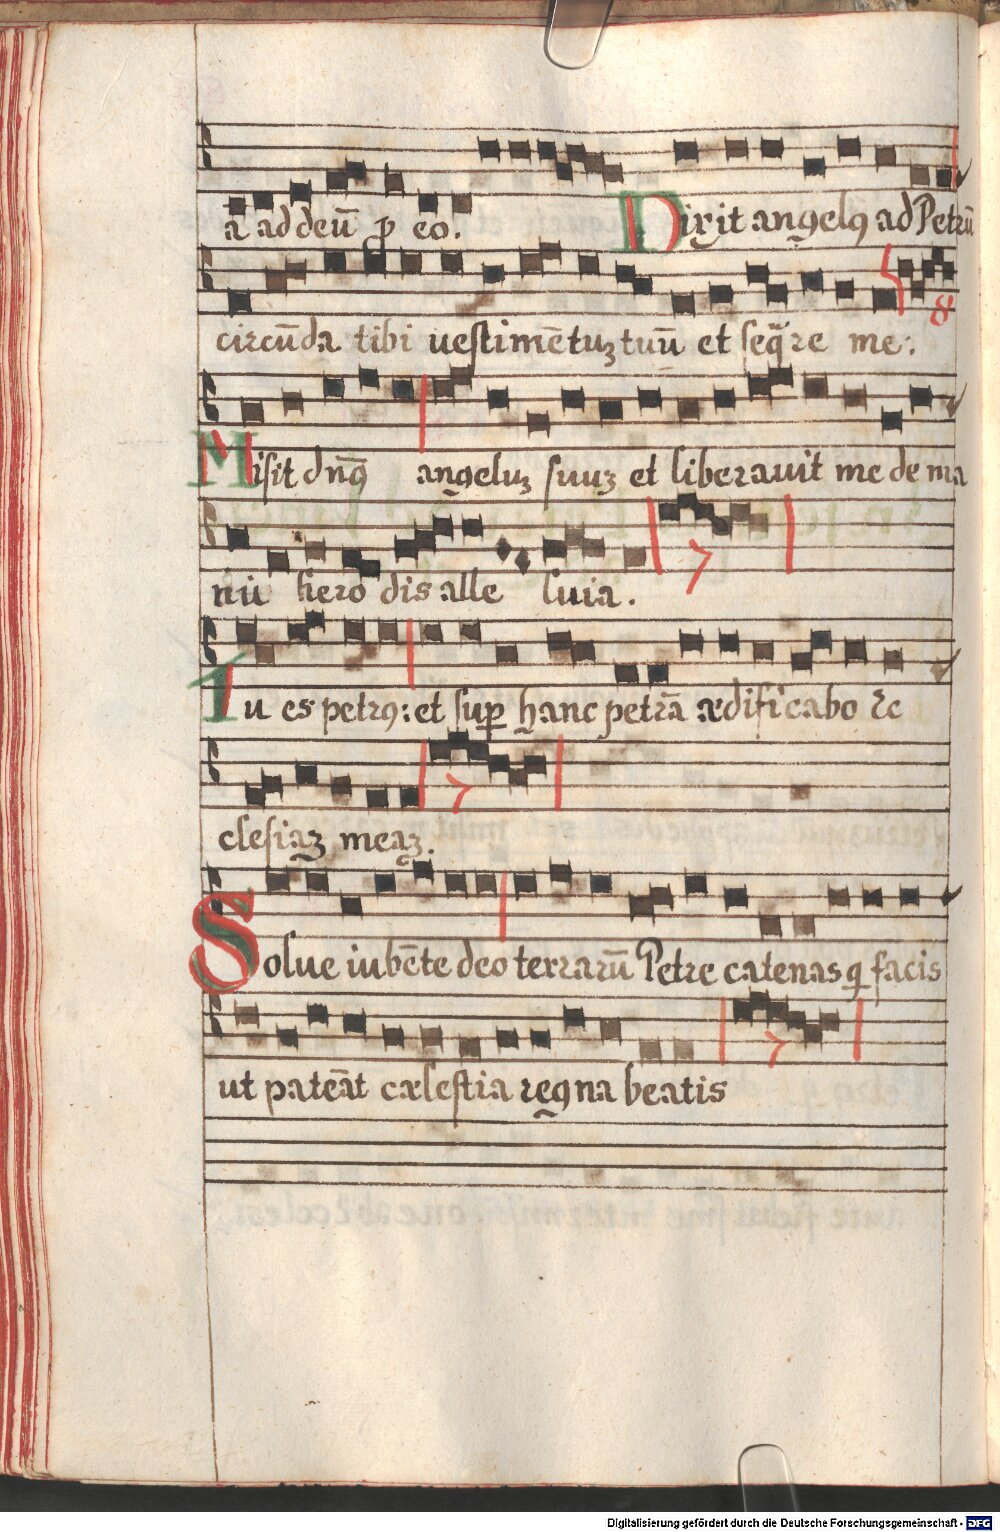 a ad deū ꝓ eo. Dixit angelꝰ ad Petrū
circūda tibi uestimētuꝫ tuū et seq̄re me:
Misit dn̄ꝰ angeluꝫ suuꝫ et liberauit me de ma
nu hero dis alle luia.
Tu es petrꝰ: et suꝑ hanc petrā ædificabo ec
clesiaꝫ meaꝫ.
Solue iubēte deo terrarū Petre catenas q̨ facis
ut pateāt cælestia regna beatis
Digitalisierung gefördert durch die Deutsche Forschungsgemeinschaft - DFG